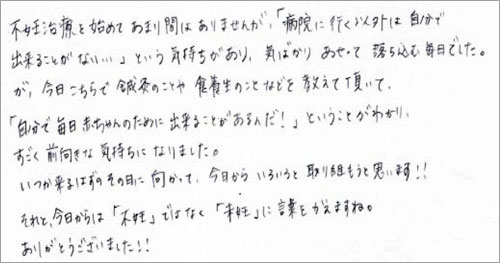 不妊治療を始めてあまり間はありませんが、「病院に行く以外は自分で
出来ることがない…」という気持ちがあり、気ばかりあせって落ち込む毎日でした。
が、今日こちらで鍼灸のことや食養生のことなどを教えて頂いて、
「自分で毎日赤ちゃんのために出来ることがあるんだ!」ということがわかり、
すごく前向きな気持ちになりました。
いつか来るはずのその日に向かって、今日からいろいろと取り組もうと思います!!
それと、今日からは「不妊」ではなく「未妊」に言葉をかえますね。
ありがとうございました!!